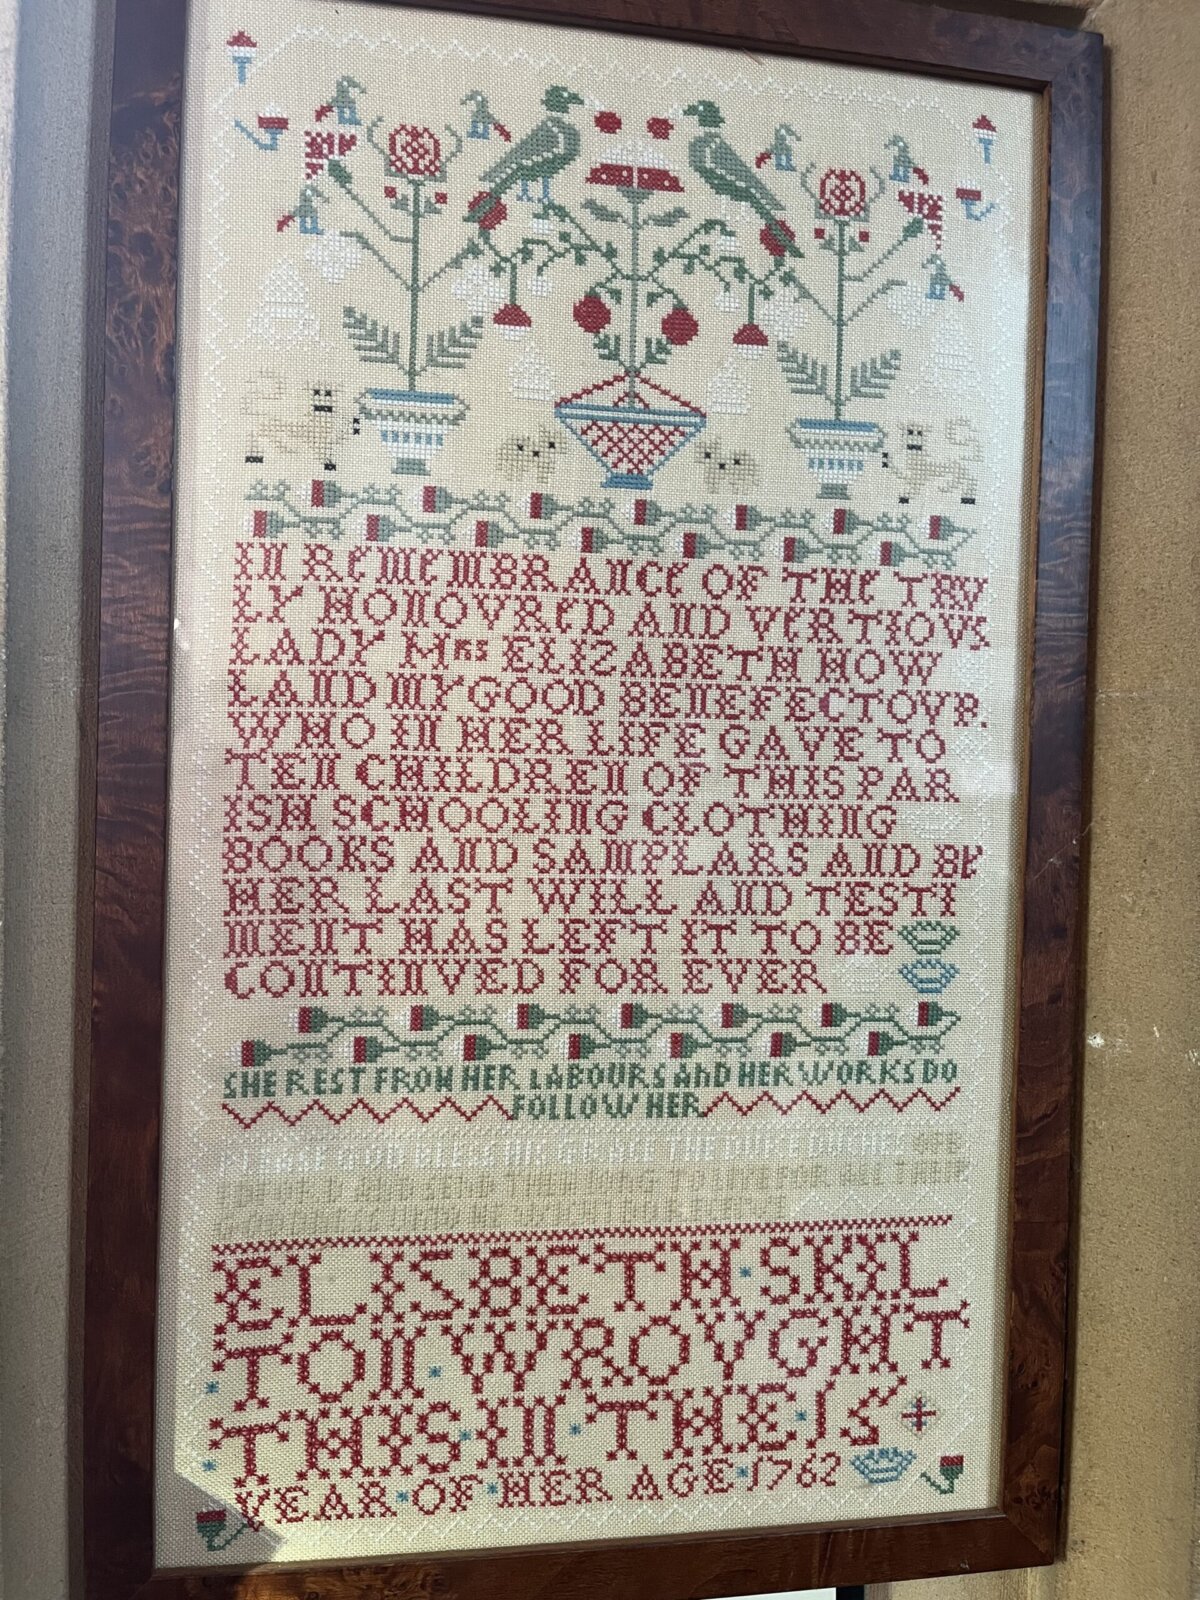 IN REMEMBRANCE OF THE TRV
LY HONOVRED AND VERTIOVS
LADY Mrs ELIZABETH HOW
LAND MY GOOD BENEFECTOVR.
WHO IN HER LIFE GAVE TO
TEN CHILDREN OF THIS PAR
ISH SCHOOLING CLOTHING
BOOKS AND SAMPLARS AND BY
HER LAST WILL AND TESTI
MENT HAS LEFT IT TO BE
CONTINVED FOR EVER
SHE REST FROM HER LABOURS AND HER WORKS DO
FOLLOW HER
PLEASE GOD BLESS HIS GRACE THE DUKE DUCHES OFB
AND SEND THEM LONG TO LIVE FOR ALL THEIR
ELISBETH SKIL
TON WROVGHT
THIS IN THE 15
YEAR OF HER AGE 1762